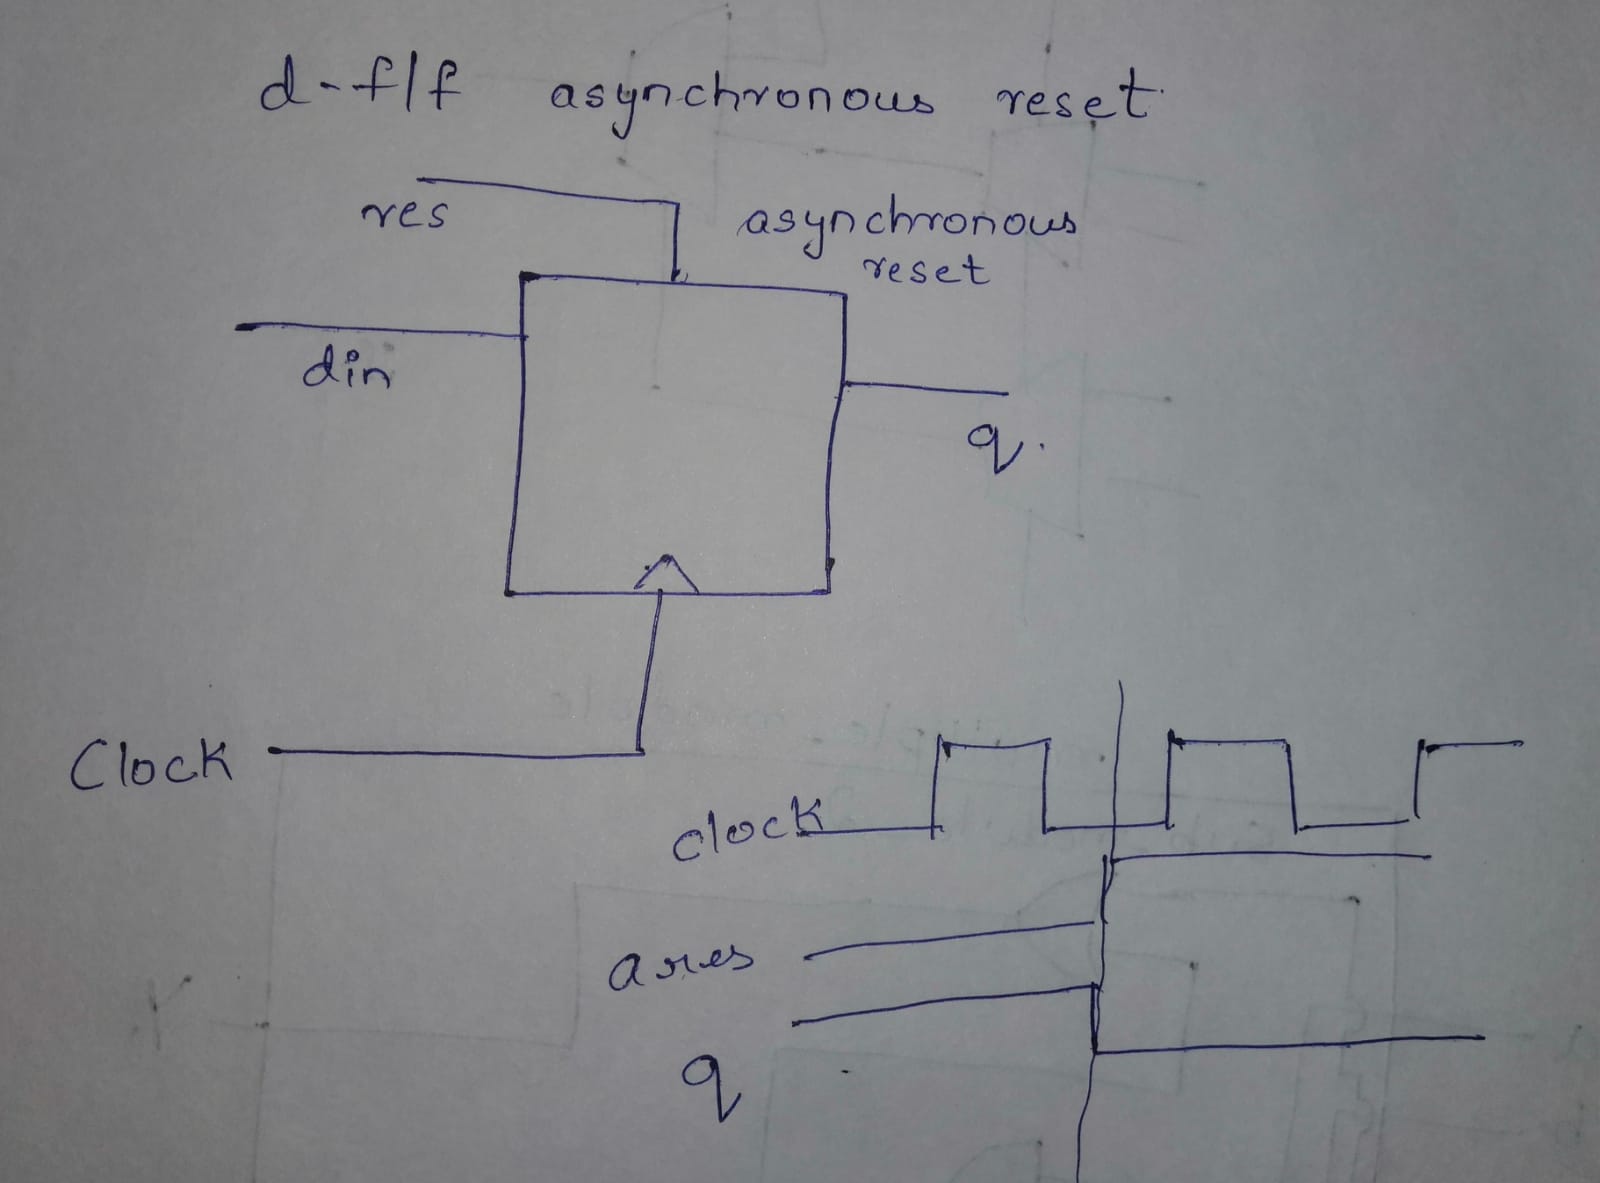 d-f/f asynchronous reset
res
asynchronous
reset
din
q.
Clock
clock
ares
q